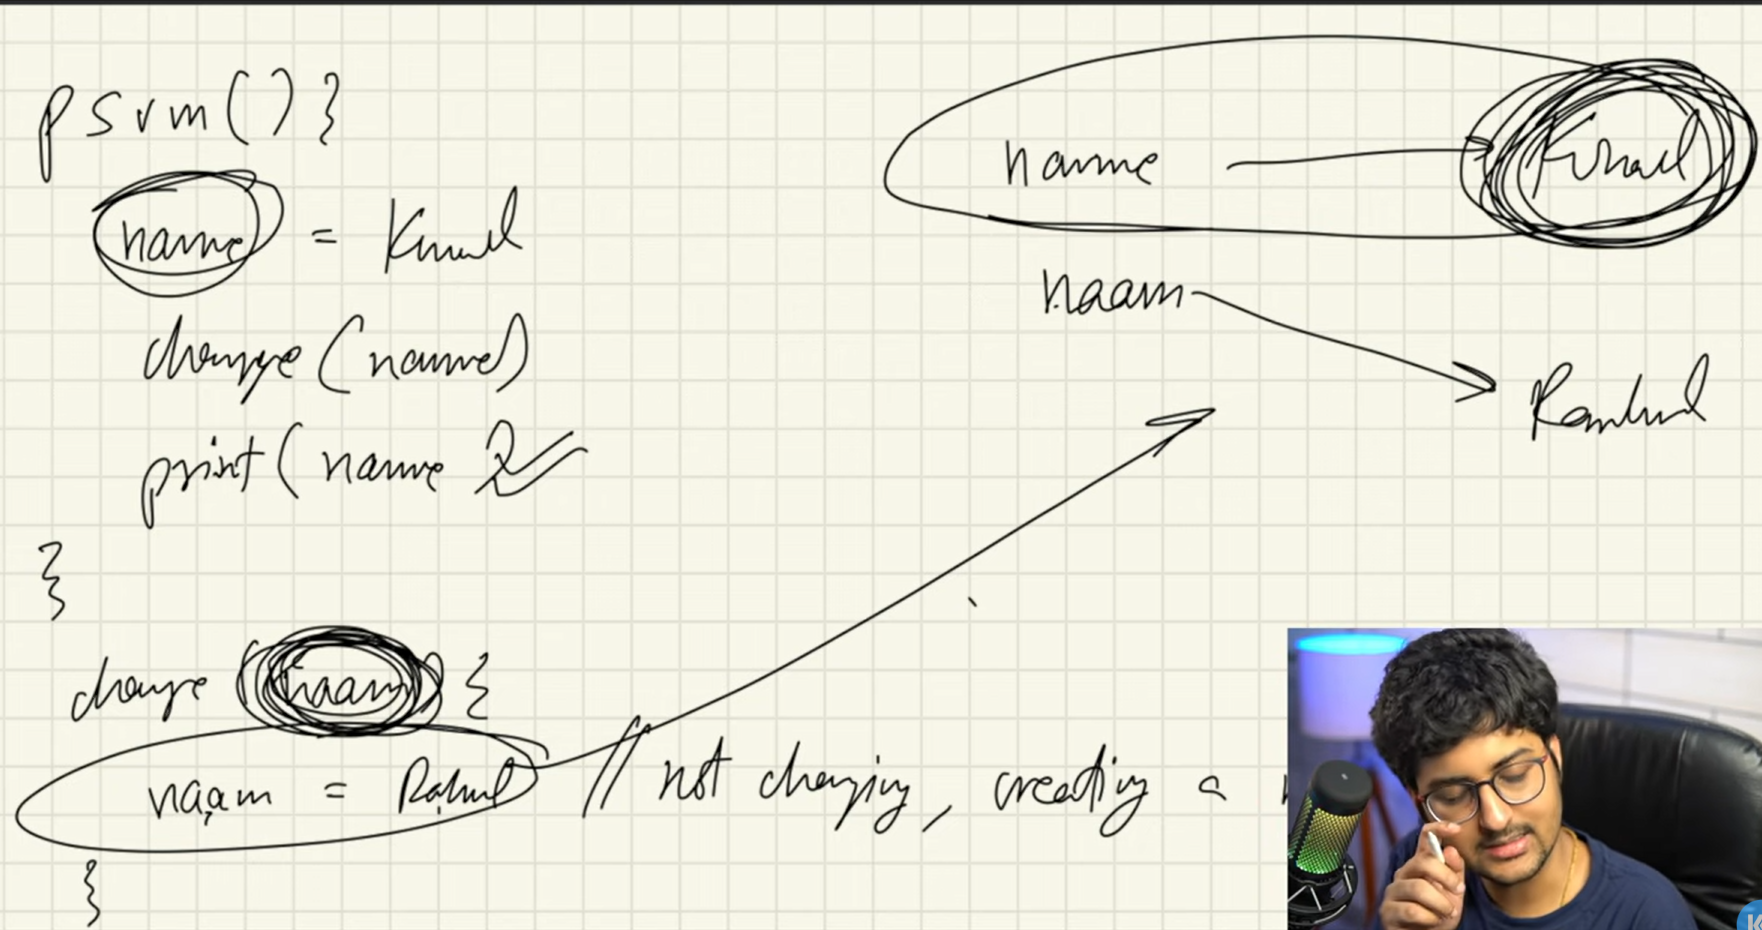 psvm(){
name = Kunal
change (name)
print( name )
}
change (naam) {
naam = Rahul // not changing, creating a
}
name → Kunal
naam → Rahul